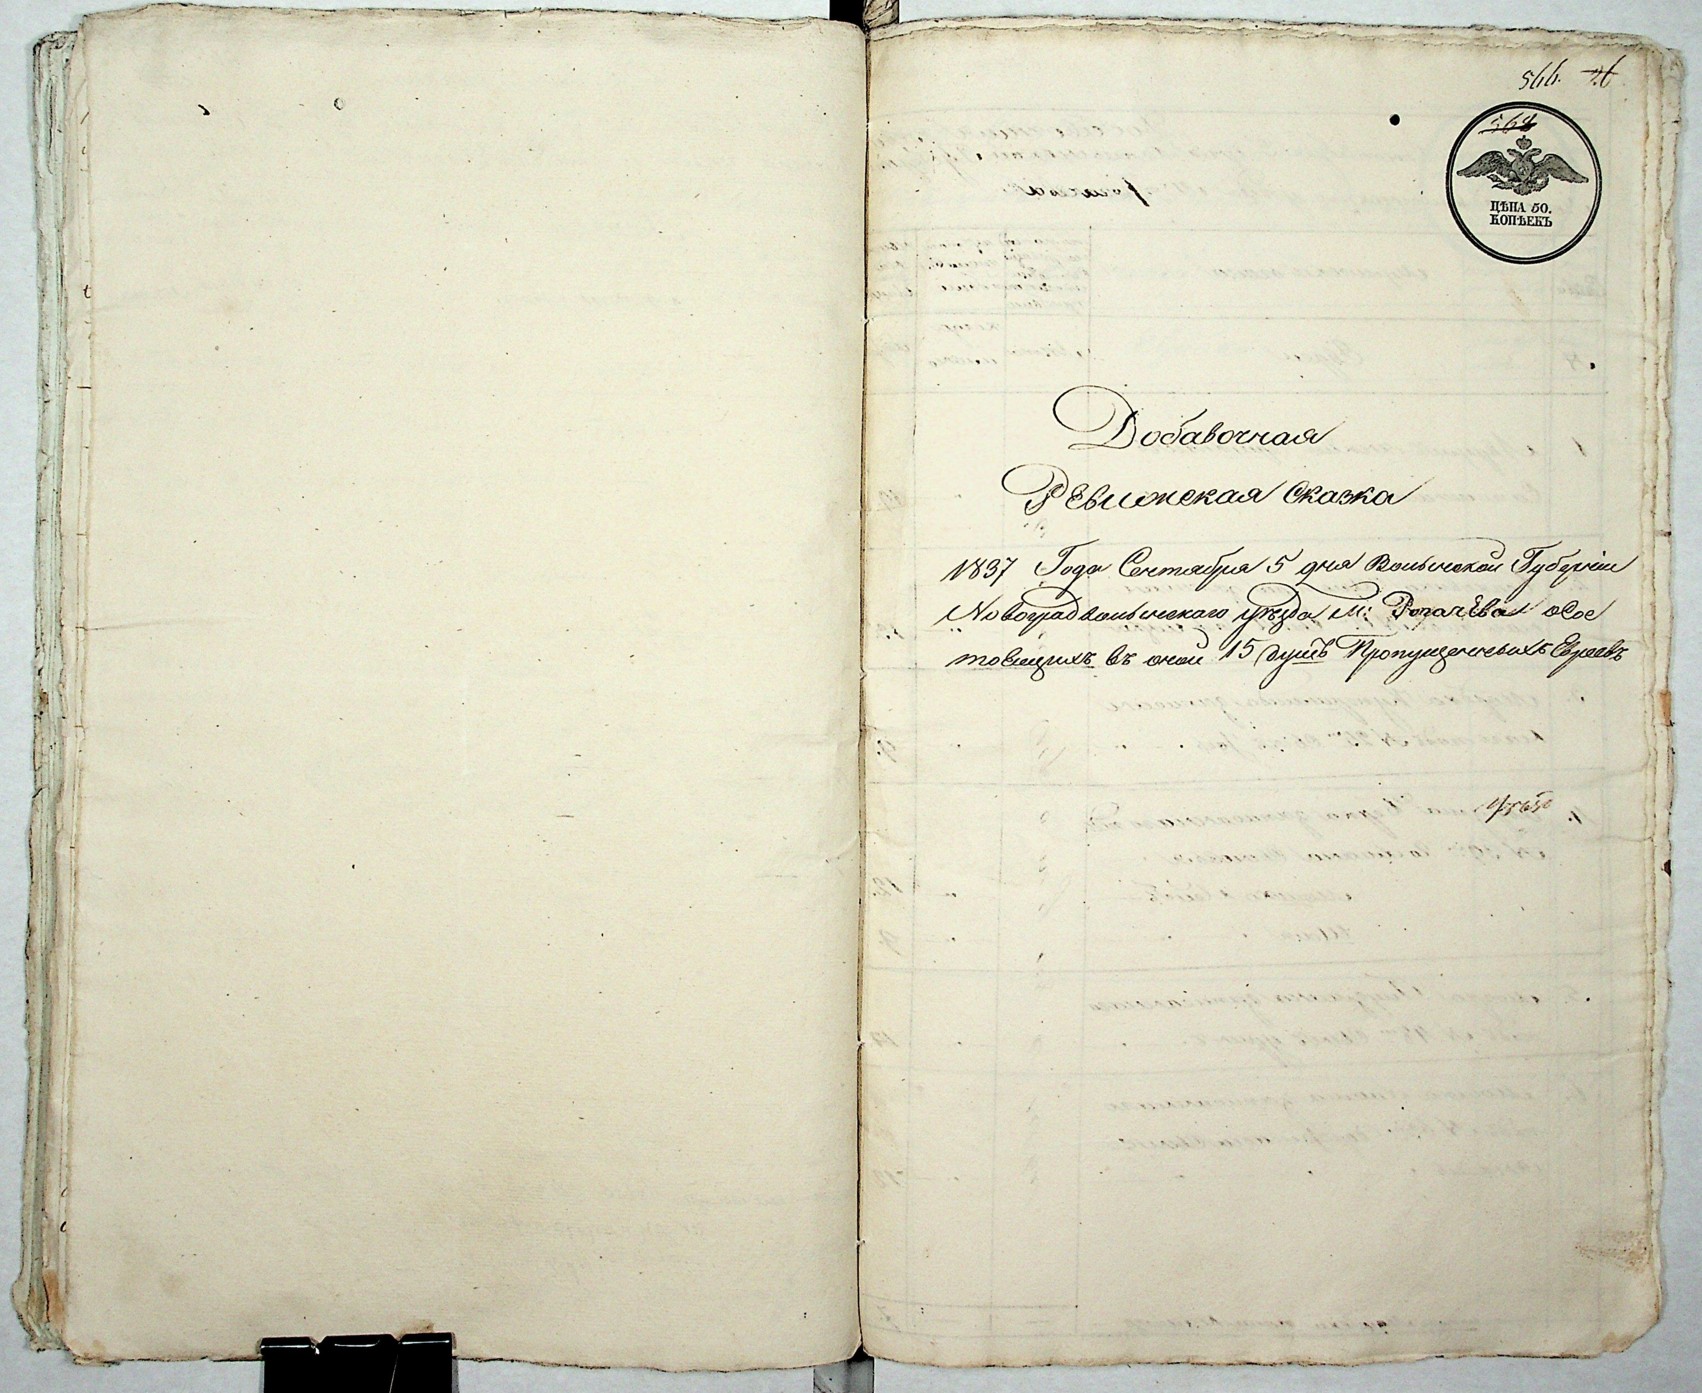 566. 26
568
ЦѢНА 50.
КОПѢЕКЪ
Добавочная
Ревижская Сказка
1837 Года Сентября 5 дня Волынской Губернiи
Новоградволынскаго уѣзда м: Рогачева о Сос
тоящихъ въ оной 15 душъ Пропущенныхъ Евреевъ